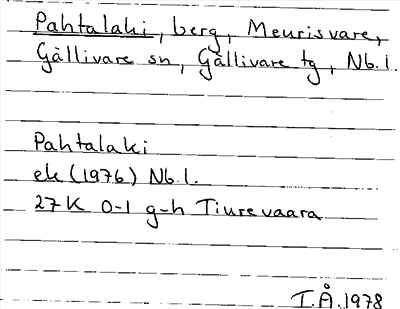 Pahtalaki, berg, Meurisvare,
Gällivare sn, Gällivare tg, Nb.l.
Pahtalaki
ek (1976) Nb.l.
27K 0-1 g-h Tiurevaara
I.Å.1978